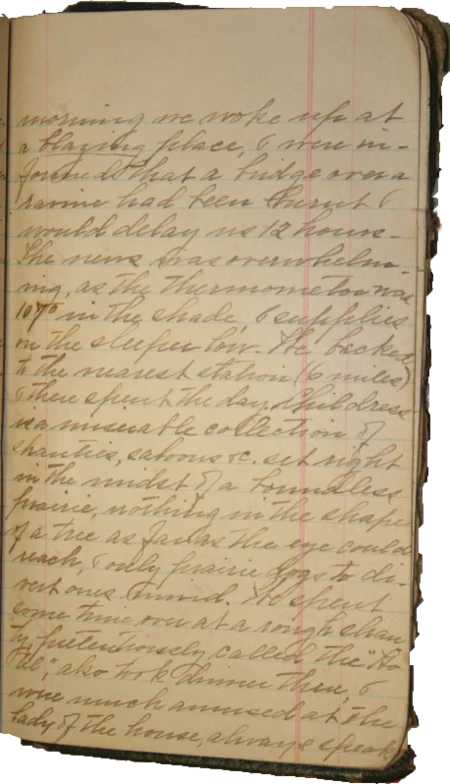 morning we woke up at
a blazing place, & were in-
formed that a bridge over a
ravine had been burnt &
would delay us 12 hours-
The news was overwhelm-
ing, as the thermometer was
107° in the shade & supplies
on the sleeper low. We backed
to the nearest station (6 miles)
& there spent the day. Childress
is a miserable collection of
shanties, saloons &c. set right
in the midst of a boundless
prairie, nothing in the shape
of a tree as far as the eye could
reach, & only prairie dogs to di-
vert ones mind. We spent
some time over at a rough shan
ty, pretentiously called the "Ho
tel", also took dinner there, &
were much amused at the
lady of the house, always speak